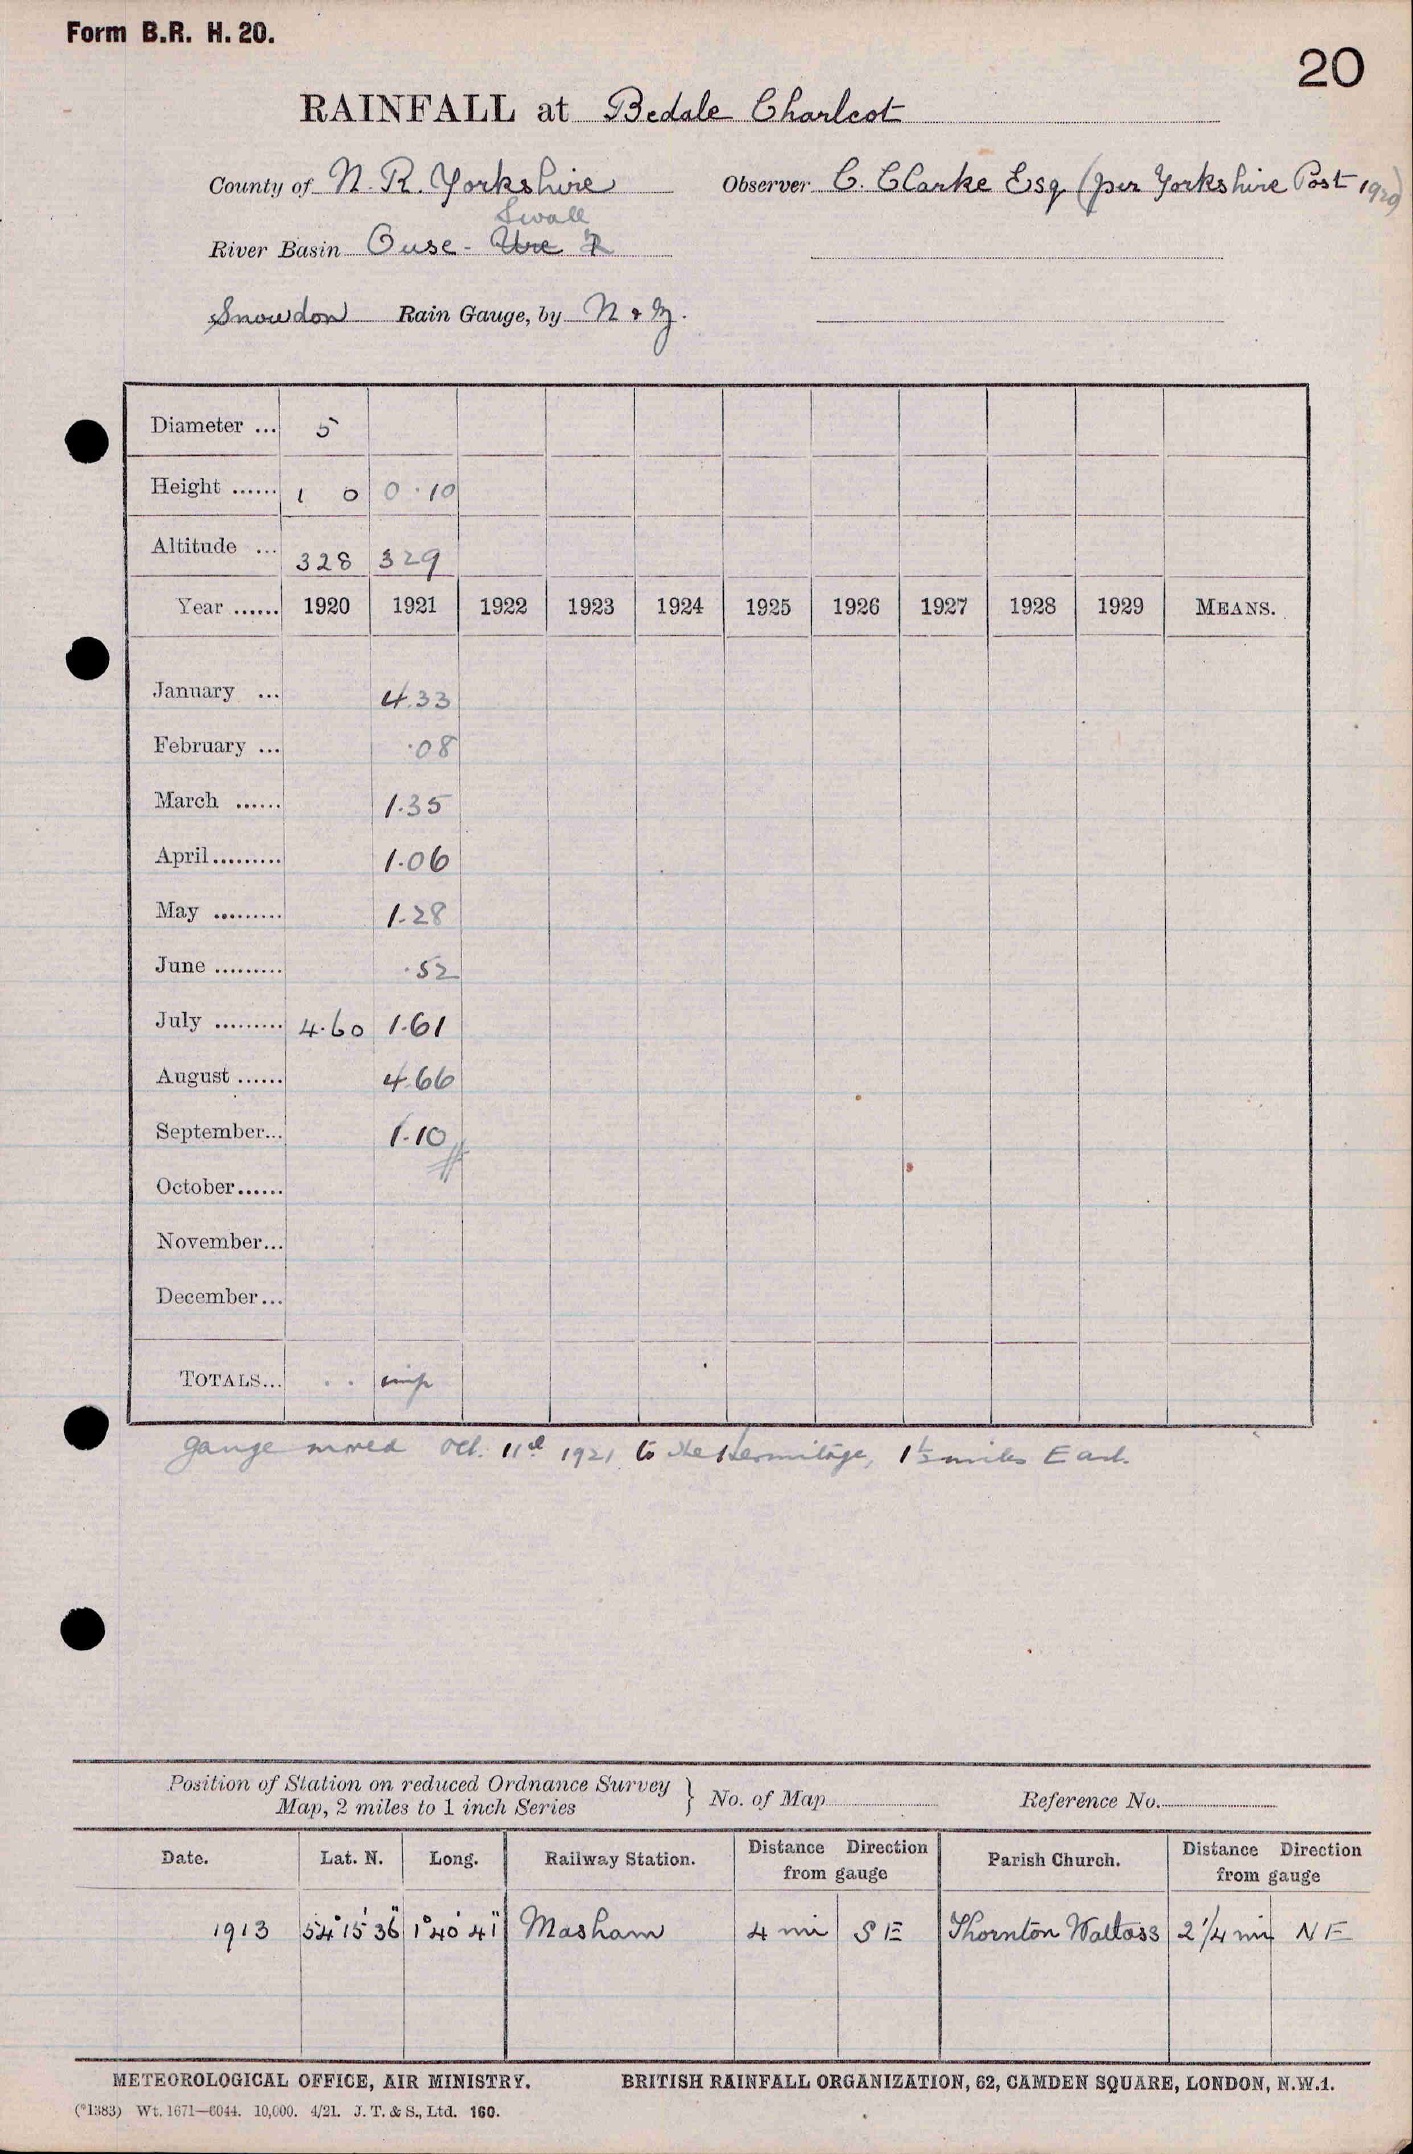 Form B.R. H. 20.
20
RAINFALL at Bedale Charlcot
County of N. R. Yorkshire Observer C. Clarke Esq (per Yorkshire Post 1920)
Swale
River Basin Ouse - Ure R
Snowdon Rain Gauge, by N & Z.
Diameter ... 5
Height ...... 1 0 0.10
Altitude ... 328 329
Year ...... 1920 1921 1922 1923 1924 1925 1926 1927 1928 1929 MEANS.
January ... 4.33
February ... .08
March ...... 1.35
April ......... 1.06
May ......... 1.28
June ......... .52
July ......... 4.60 1.61
August ...... 4.66
September... 1.10
October......
November...
December...
TOTALS... . . imp
gauge moved Oct. 11th 1921 to the Hermitage, 1½ miles East.
Position of Station on reduced Ordnance Survey } No. of Map Reference No.
Map, 2 miles to 1 inch Series
Date. Lat. N. Long. Railway Station. Distance Direction from gauge Parish Church. Distance Direction from gauge
1913 54° 15' 36" 1° 40' 41" Masham 4 mi S E Thornton Watlass 2 1/4 mi N E
METEOROLOGICAL OFFICE, AIR MINISTRY. BRITISH RAINFALL ORGANIZATION, 62, CAMDEN SQUARE, LONDON, N.W.1.
(*1383) Wt. 1671—6044. 10,000. 4/21. J. T. & S., Ltd. 160.